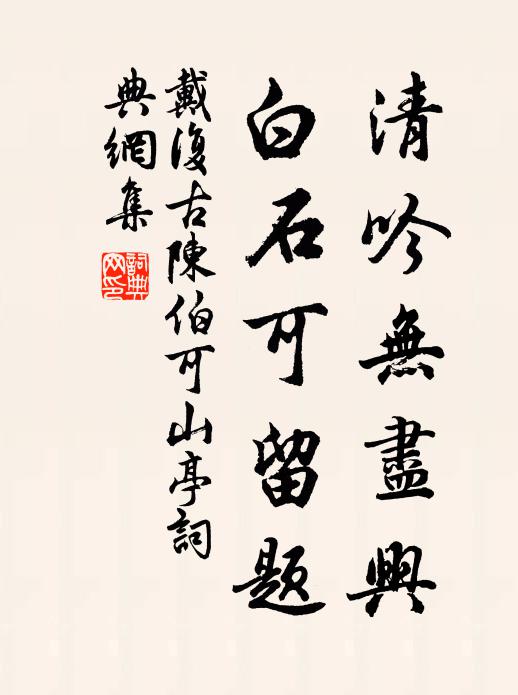 清吟無盡興
白石可留题
戴復古陳伯可山亭詞
典網集
詞典網印